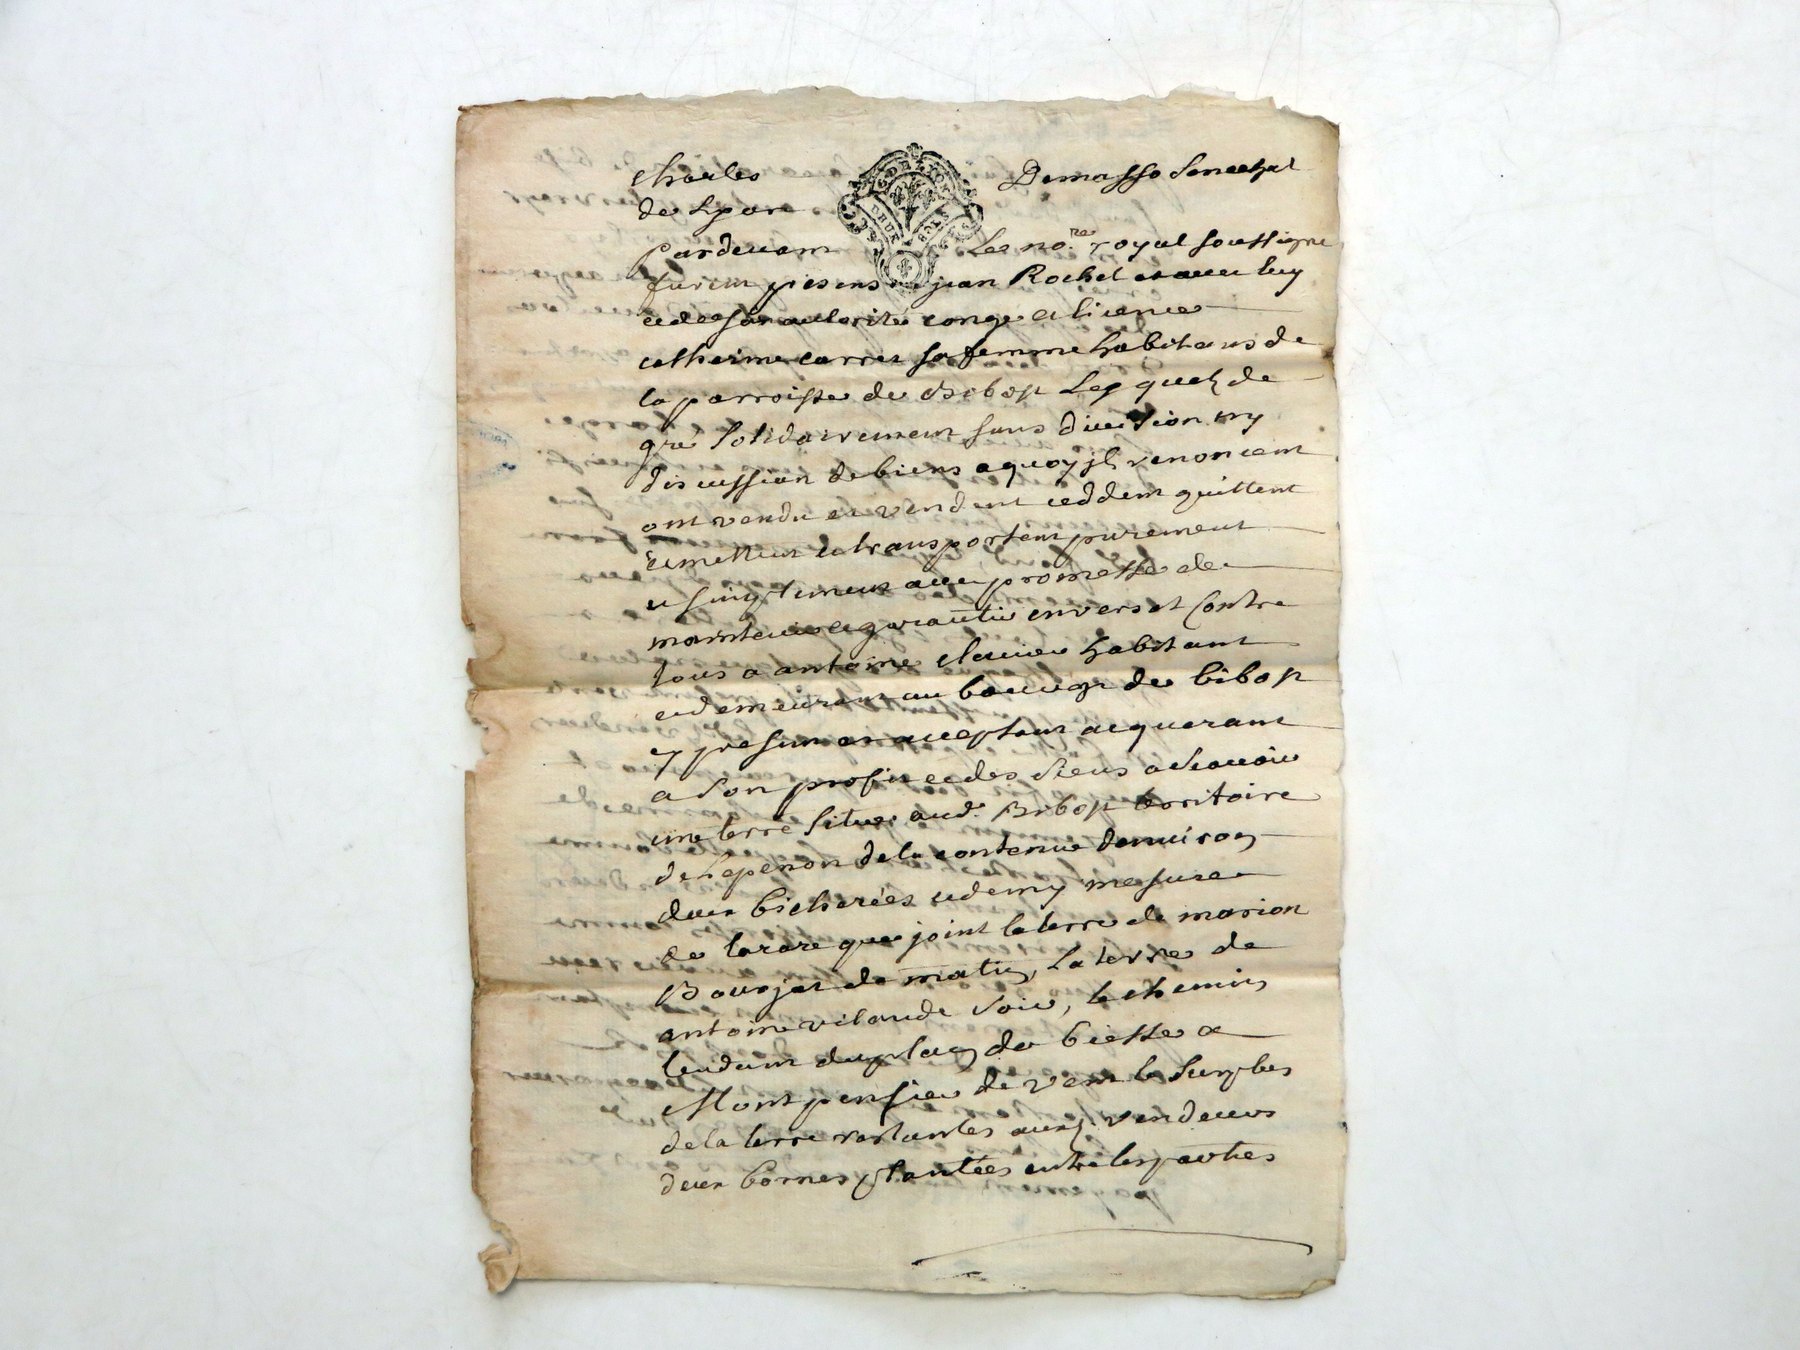 Charles Demasso Senechal
de Lyon
pardevant Le no.re royal soussigne
furent presens jean Rochet et avec luy
et de son autorité conge et licence
catherine carret sa femme habitans de
la parroisse de Bibost Lesquelz de
gré solidairement sans division ny
discussion de biens a quoy ilz renoncent
ont vendu et vendent ceddent quittent
remettent et transportent purement
et simplement avec promesse de
maintenir et garantir envers et Contre
tous a antoine clavier habitant
et demeurant au bourg de bibost
cy present et acceptant acquerant
a son profit et des siens a scavoir
une terre situee aud. Bibost territoire
de la contenue denviron
deux bicherées et demy mesure
de larare que joint la terre de marion
de matin, La terre de
antoine de soir, le chemin
tendant du de biesse a
Montpensier de vent le surplus
de la terre restantes auxd. vendeurs
deux bornes plantées entre les parties